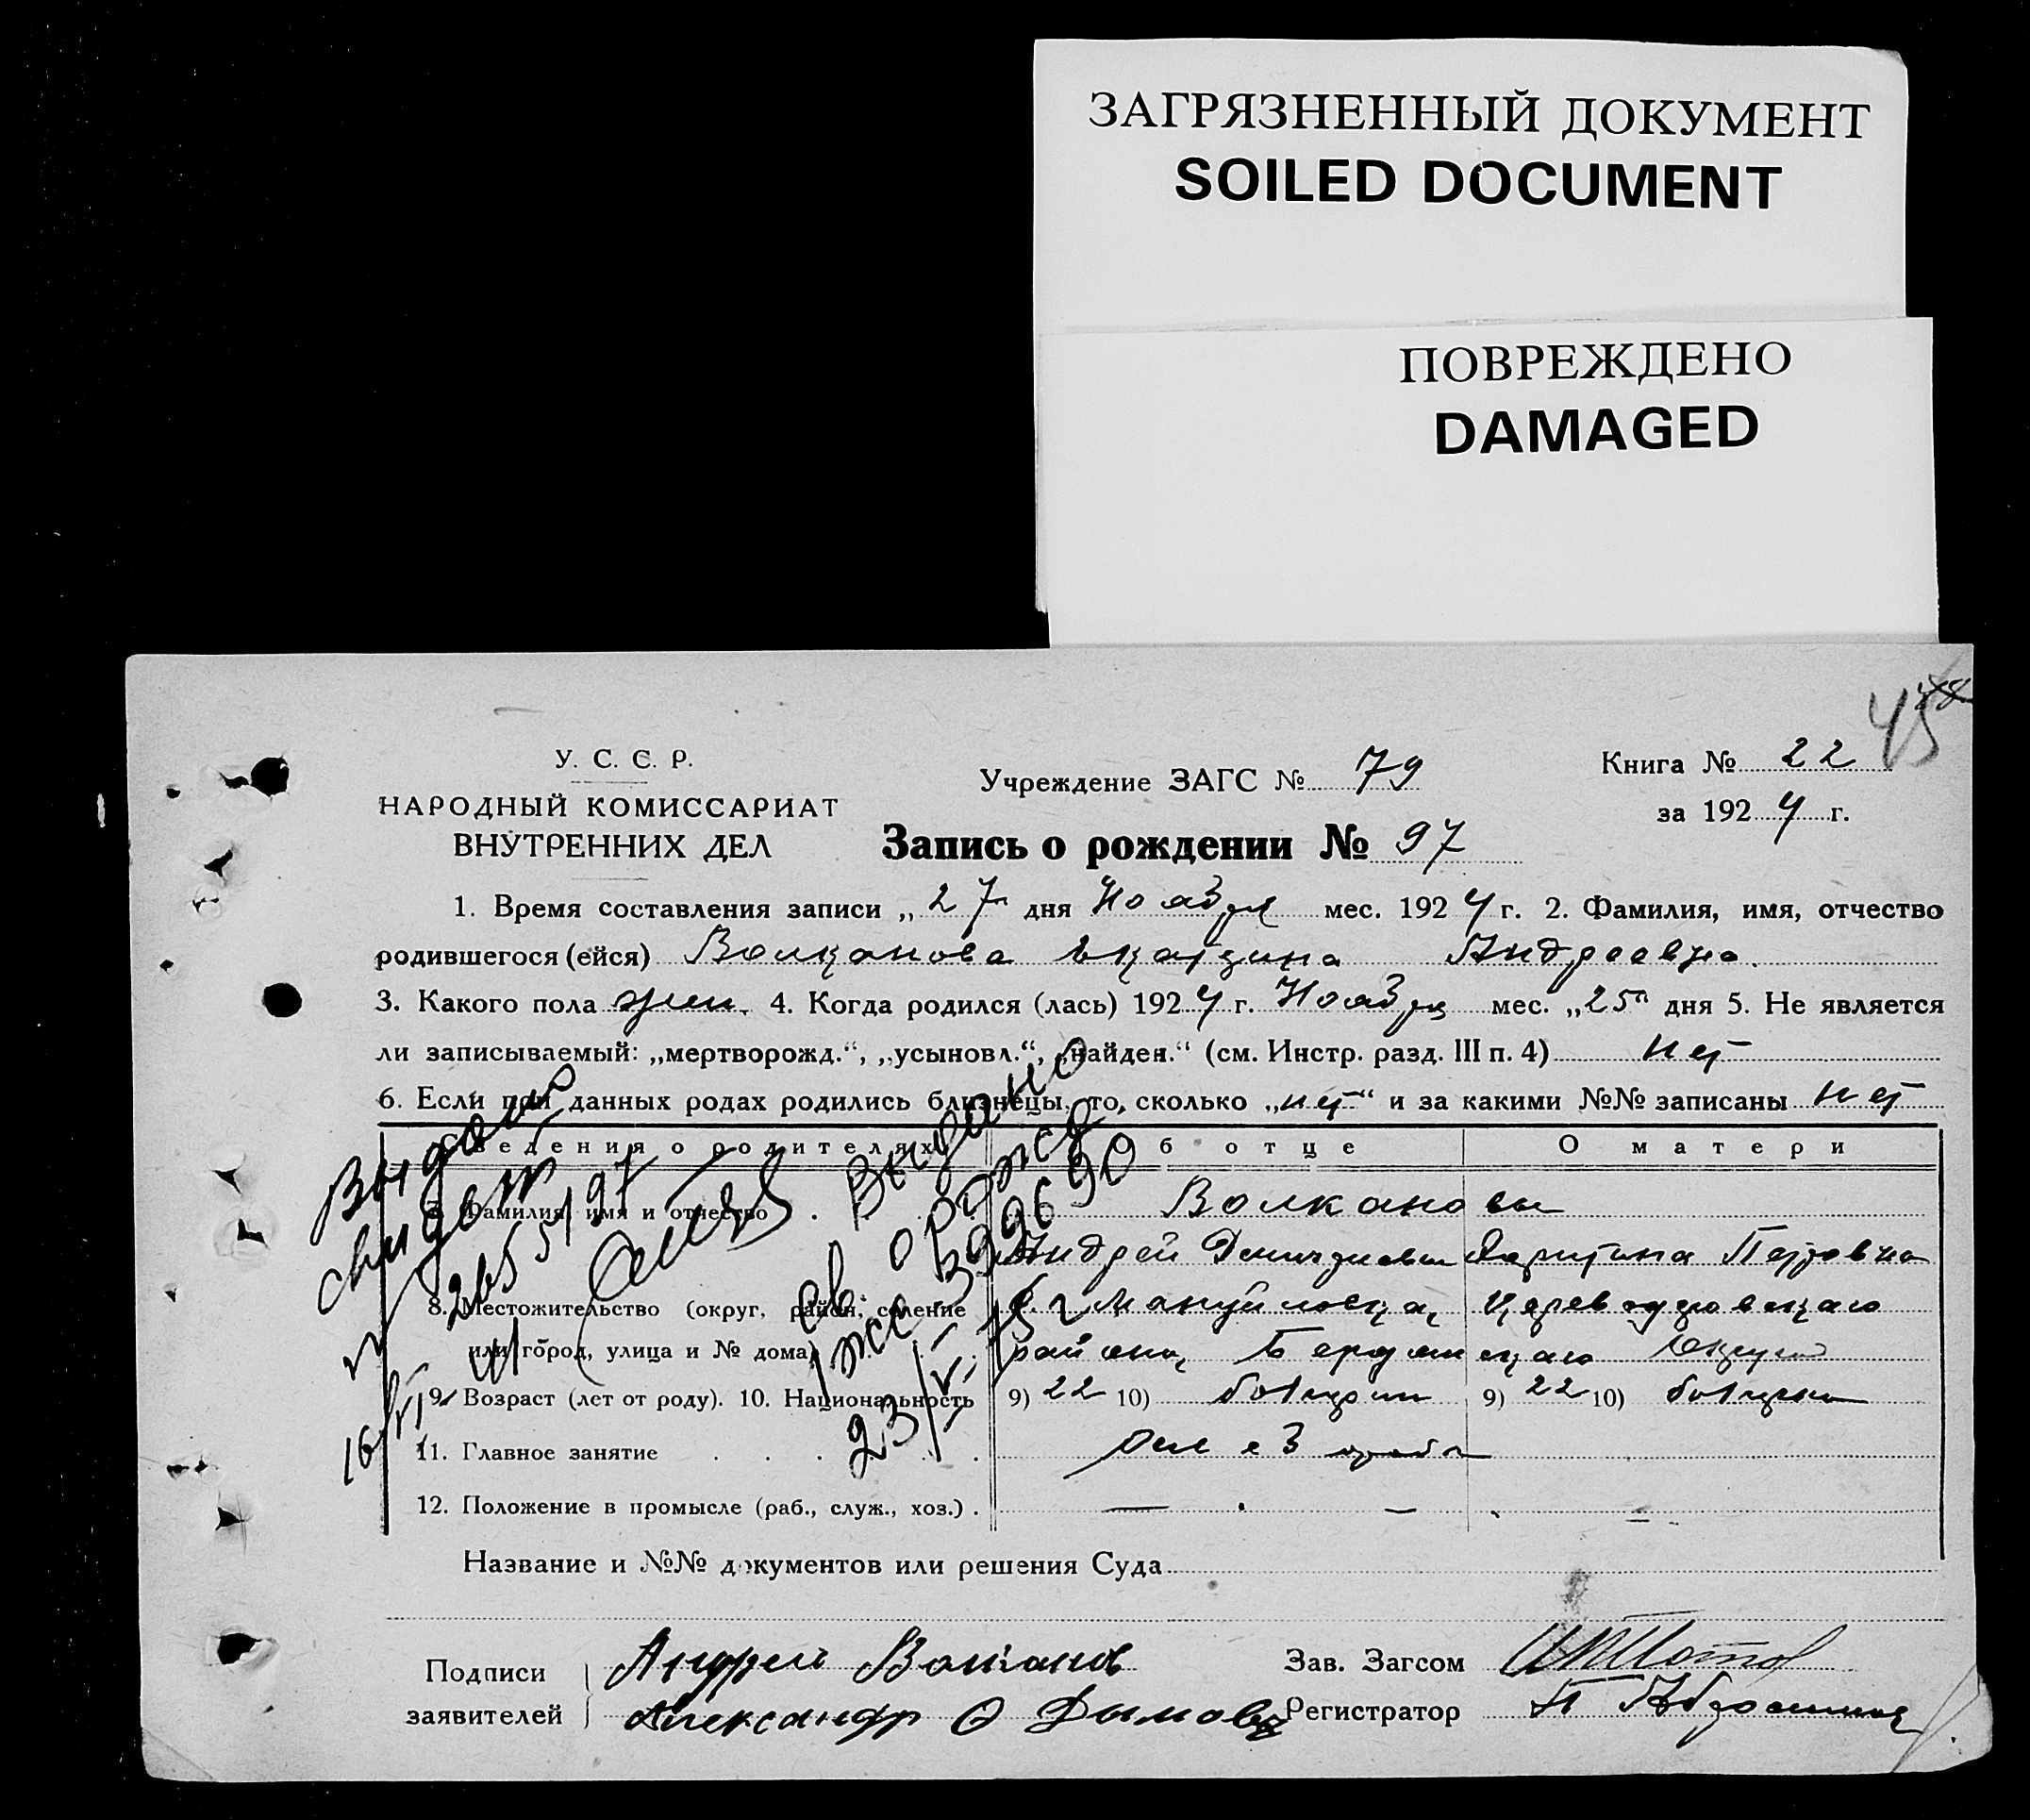 ЗАГРЯЗНЕННЫЙ ДОКУМЕНТ
SOILED DOCUMENT
ПОВРЕЖДЕНО
DAMAGED
45
У. С. Є. Р.
НАРОДНЫЙ КОМИССАРИАТ
ВНУТРЕННИХ ДЕЛ
Учреждение ЗАГС № 79
Книга № 22
за 1924 г.
Запись о рождении № 97
1. Время составления записи „27" дня Ноября мес. 1924 г. 2. Фамилия, имя, отчество
родившегося (ейся) Волканова Екатерина Андреевна.
3. Какого пола жен. 4. Когда родился (лась) 1924 г. Ноября мес. „25" дня 5. Не является
ли записываемый: „мертворожд.“, „усыновл.“, „найден.“ (см. Инстр. разд. III п. 4) нет
6. Если при данных родах родились близнецы, то, сколько „нет“ и за какими №№ записаны нет
Сведения о родителях Об отце О матери
7. Фамилия, имя и отчество Волкановы
Андрей Петровна
8. Местожительство (округ, район, селение с. Мануйловка,
или город, улица и № дома) района,
9. Возраст (лет от роду). 10. Национальность 9) 22 10) болгарин 9) 22 10) болгарка
11. Главное занятие
12. Положение в промысле (раб., служ., хоз.) . — —
Выдано
свидет
16/VI
Выдано
св о рожд
23/VI 75 г
Название и №№ документов или решения Суда
Подписи заявителей
Андрей Волканов
Александр Ф Дымов
Зав. Загсом
Регистратор